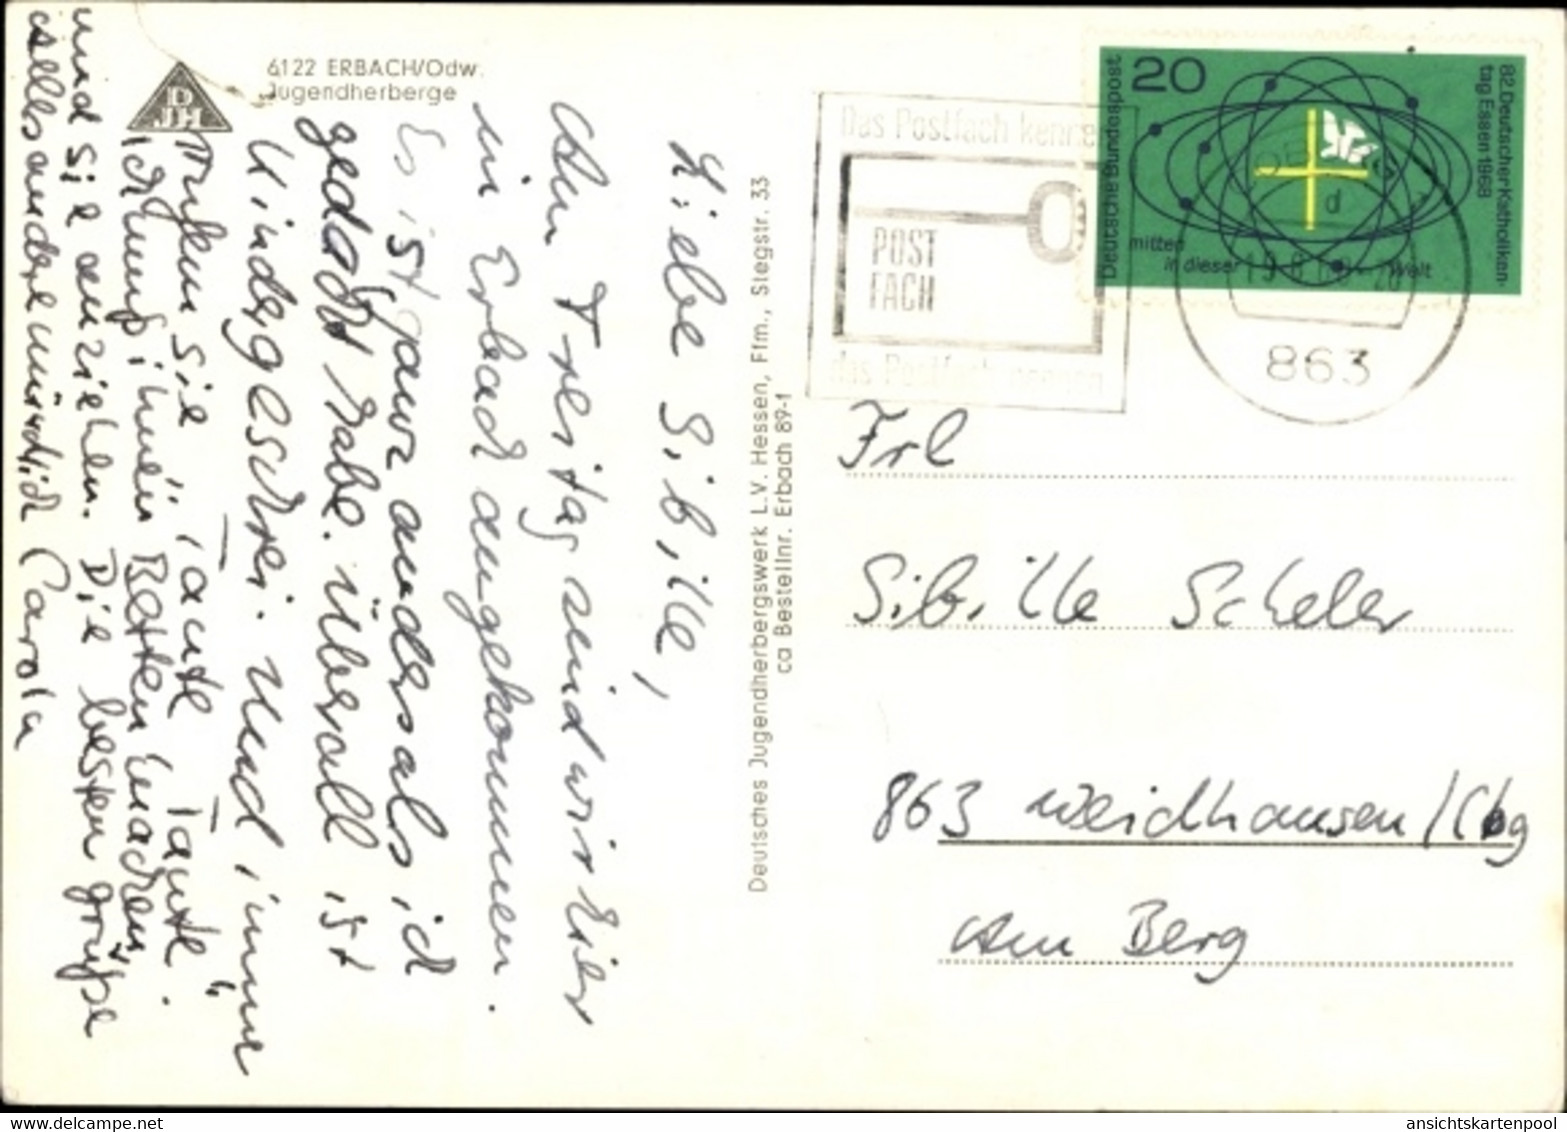 6122 ERBACH/Odw.
Jugendherberge
DJH
Liebe Sibille,
Am Freitag sind wir hier
in Erbach angekommen.
Es ist ganz anders als ich
gedacht habe. Überall ist
Kindergeschrei. Und immer
rufen sie "Tante Tante".
Ich muß ihnen Betten machen
und sie anziehen. Die besten Grüße
alles andere mündlich Carola
Deutsches Jugendherbergswerk L.V. Hessen, Ffm., Stegstr. 33
ca Bestellnr. Erbach 89-1
Das Postfach kennen
POST
FACH
das Postfach nennen
Deutsche Bundespost
20
82. Deutscher Katholiken-
tag Essen 1968
mitten
in dieser Welt
d
863
Frl
Sibille Scheler
863 Weidhausen/Cbg
Am Berg
ansichtskartenpool